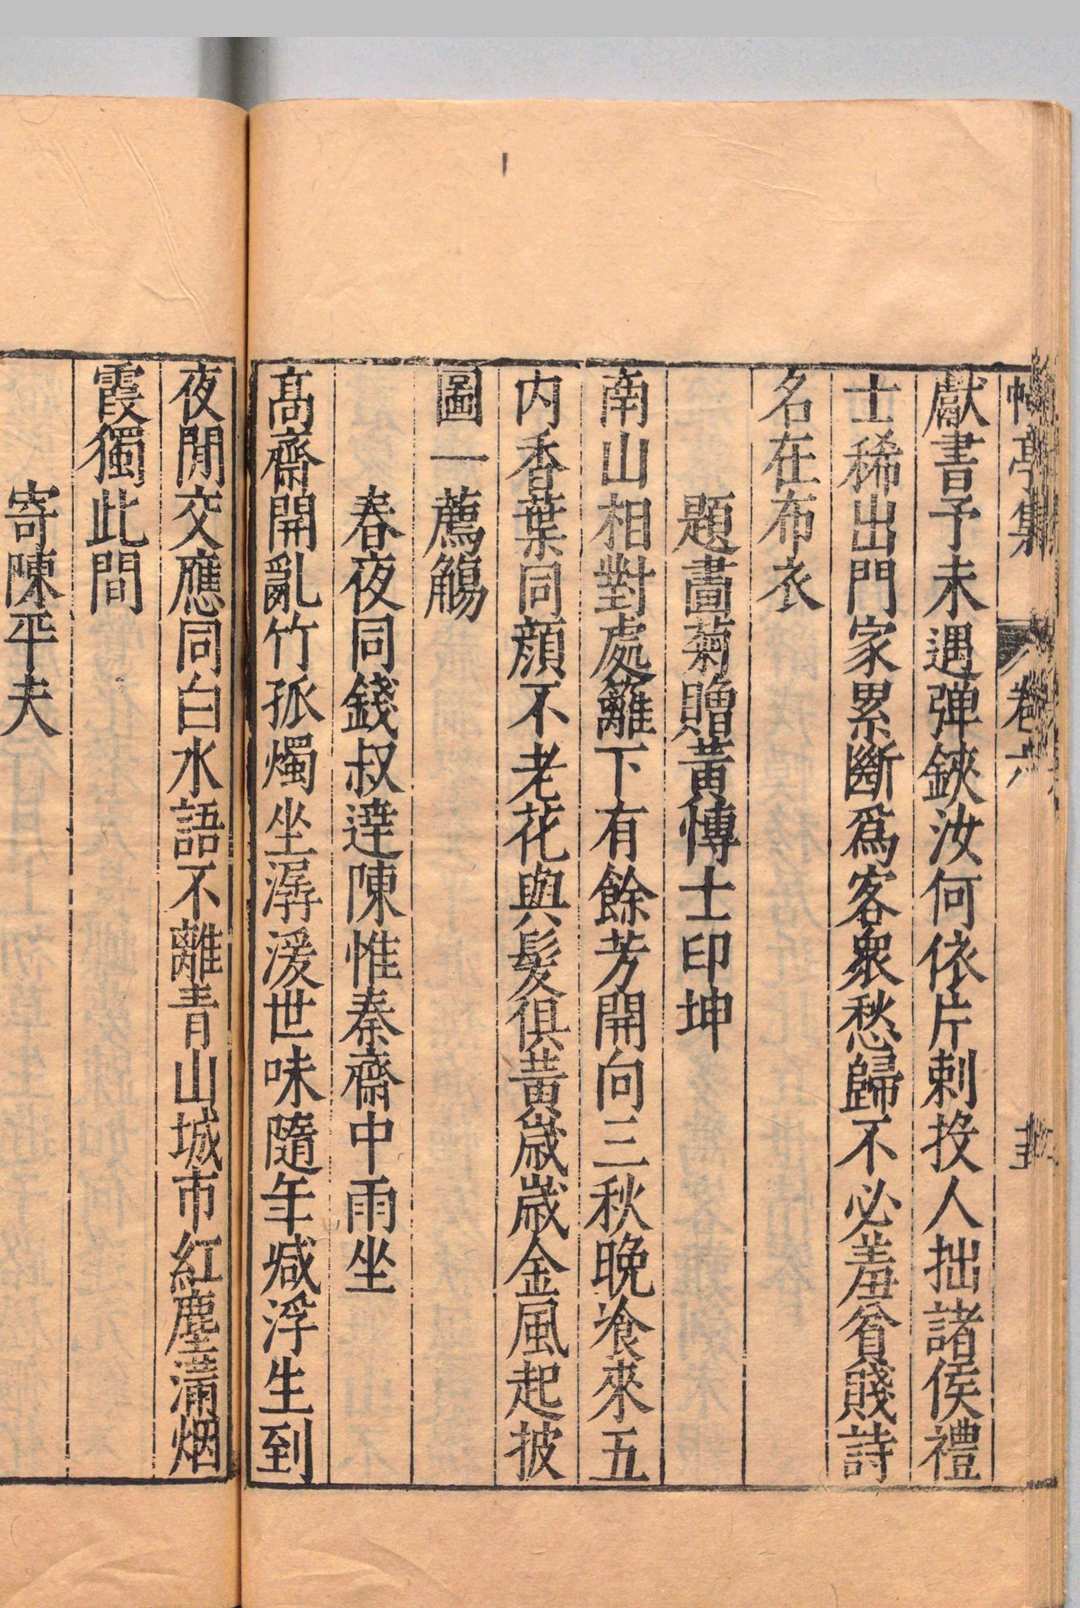 幔亭集 卷六
獻書予未遇彈鋏汝何依片刺投人拙諸侯禮
士稀出門家累斷爲客衆愁歸不必羞貧賤詩
名在布衣
題畫菊贈黃愽士印坤
南山相對處籬下有餘芳開向三秋晚飡來五
内香葉同顔不老花與髮俱黃歲歲金風起披
圖一薦觴
春夜同錢叔達陳惟秦齋中雨坐
高齋開亂竹孤燭坐潺湲世味隨年减浮生到
夜閒交應同白水語不離青山城市紅塵滿烟
霞獨此間
寄陳平夫